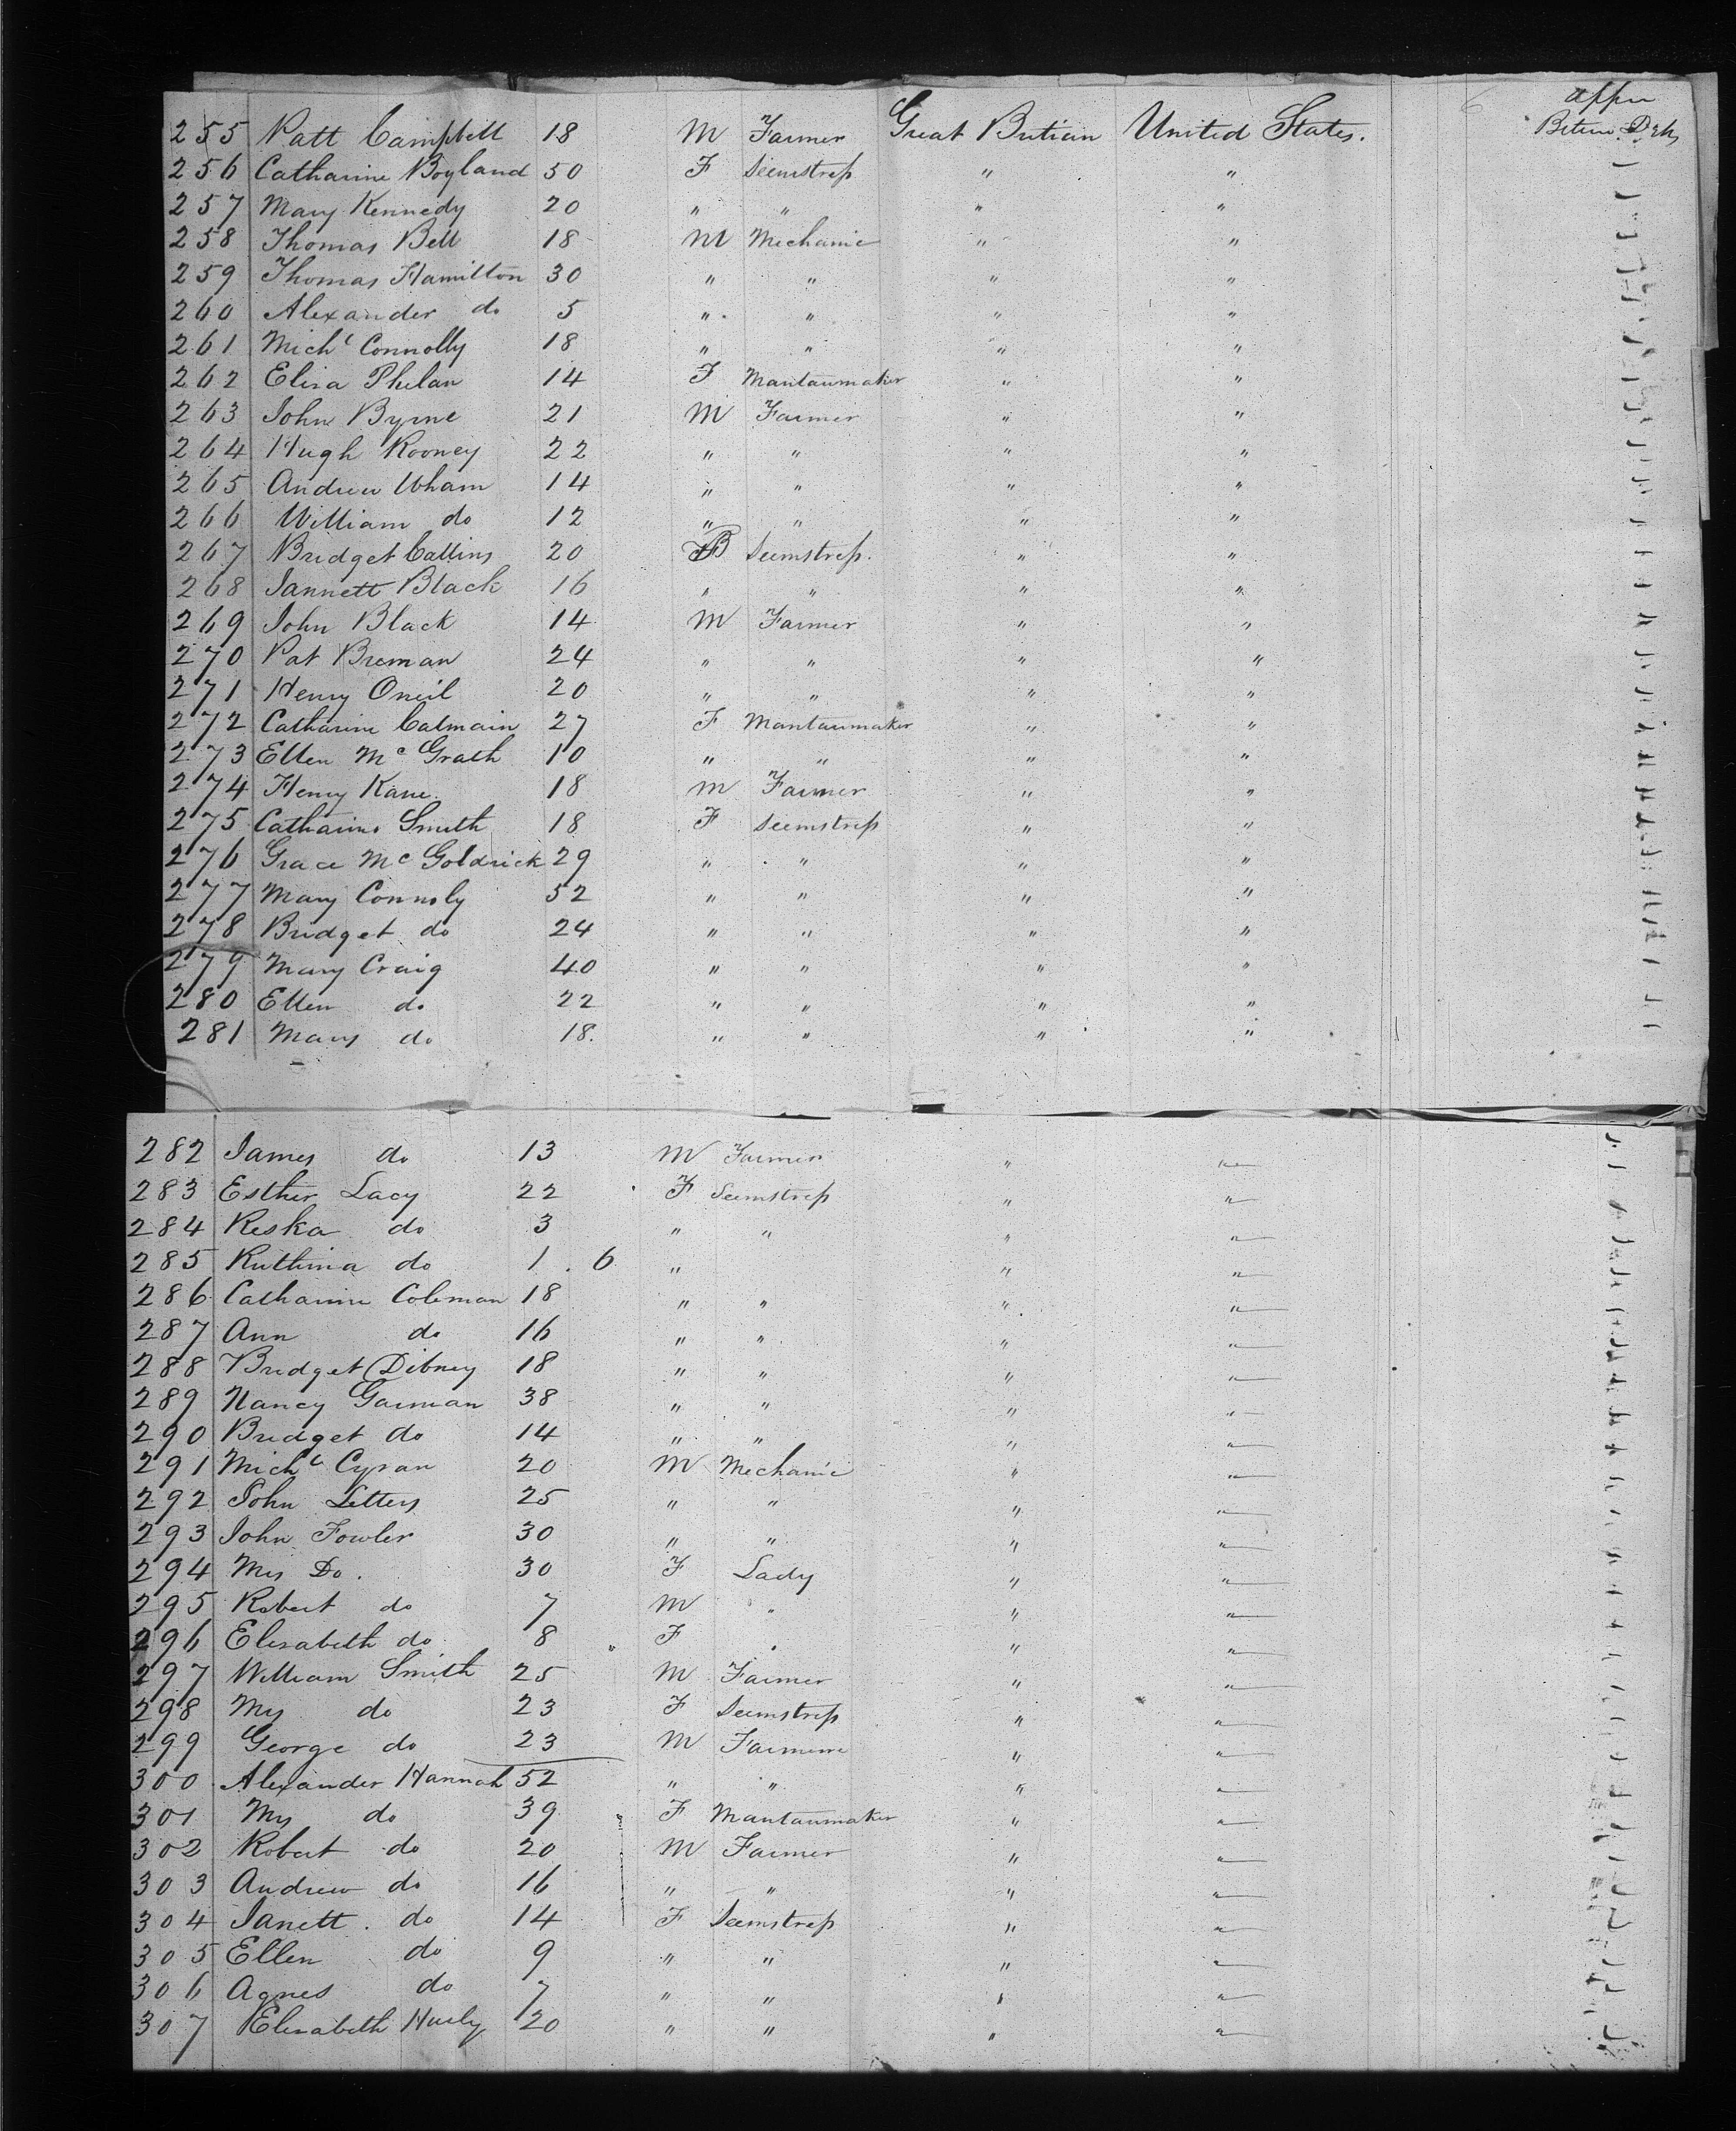 255 Patt Campbell 18 M Farmer Great Britian United States. 6 Betw. Dks
256 Catharine Boyland 50 F Seemstress " "
257 Mary Kennedy 20 " " " "
258 Thomas Bell 18 M Mechanic " "
259 Thomas Hamilton 30 " " " "
260 Alexander do 5 " " " "
261 Michl Connolly 18 " " " "
262 Eliza Phelan 14 F Mantaumaker " "
263 John Byrne 21 M Farmer " "
264 Hugh Rooney 22 " " " "
265 Andrew Wham 14 " " " "
266 William do 12 " " " "
267 Bridget Collins 20 F Seemstress. " "
268 Jannett Black 16 " " " "
269 John Black 14 M Farmer " "
270 Pat Breman 24 " " " "
271 Henry Oneil 20 " " " "
272 Catharine Calmain 27 F Mantaumaker " "
273 Ellen Mc Grath 10 " " " "
274 Henry Kane. 18 M Farmer " "
275 Catharine Smith 18 F Seemstress " "
276 Grace Mc Goldrick 29 " " " "
277 Mary Connoly 52 " " " "
278 Bridget do 24 " " " "
279 Mary Craig 40 " " " "
280 Ellen do 22 " " " "
281 Mary do 18. " " " "
282 James do 13 M Farmer " "
283 Esther Lacy 22 F Seemstress " "
284 Reska do 3 " " " "
285 Ruthina do 1 . 6 " " "
286 Catharine Coleman 18 " " " "
287 Ann do 16 " " " "
288 Bridget Dibney 18 " " " "
289 Nancy Garman 38 " " " "
290 Bridget do 14 " " " "
291 Michl Cyran 20 M Mechanic " "
292 John Letters 25 " " " "
293 John Fowler 30 " " " "
294 Mrs Do. 30 F Lady " "
295 Robert do 7 M " " "
296 Elizabeth do 8 " F " " "
297 William Smith 25 M Farmer " "
298 Mrs do 23 F Seemstress " "
299 George do 23 M Farmer " "
300 Alexander Hannah 52 " " " "
301 Mrs do 39 F Mantaumaker " "
302 Robert do 20 M Farmer " "
303 Andrew do 16 " " " "
304 Janett. do 14 F Seemstress " "
305 Ellen do 9 " " " "
306 Agnes do 7 " " " "
307 Elizabeth Hurly 20 " " " "